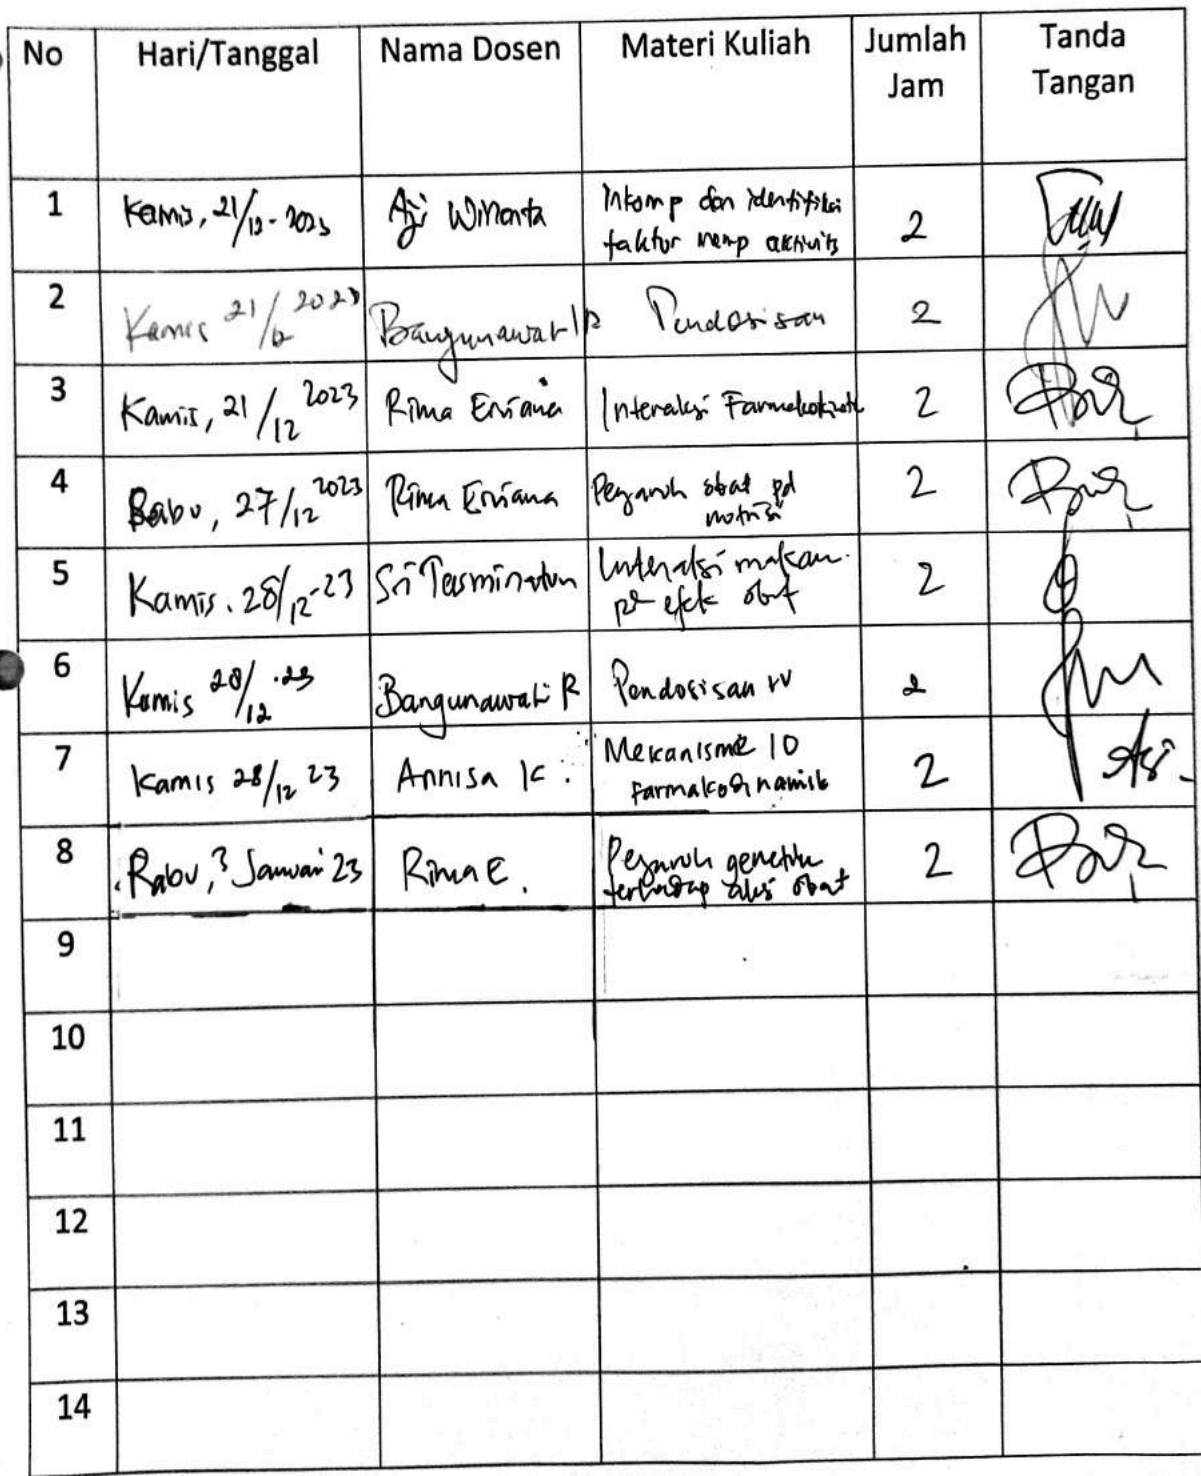 No Hari/Tanggal Nama Dosen Materi Kuliah Jumlah Jam Tanda Tangan
1 Kamis, 21/12-2023 Aji Winanta Inkomp dan identifikasi 2
faktor memp aktivits
2 Kamis 21/12 2023 Bangunawati R Pendosisan 2
3 Kamis, 21/12 2023 Rima Erviana Interaksi Farmakokinetik 2
4 Rabu, 27/12 2023 Rima Erviana Pengaruh obat pd 2
nutrisi
5 Kamis. 28/12-23 Sri Tasminatun Interaksi makan. 2
efek obat
6 Kamis 28/12.23 Bangunawati R Pendosisan IV 2
7 Kamis 28/12 23 Annisa K. Mekanisme IO 2
Farmakodinamik
8 Rabu, 3 Januari 23 Rima E. Pengaruh genetik 2
terhadap aksi obat
9
10
11
12
13
14